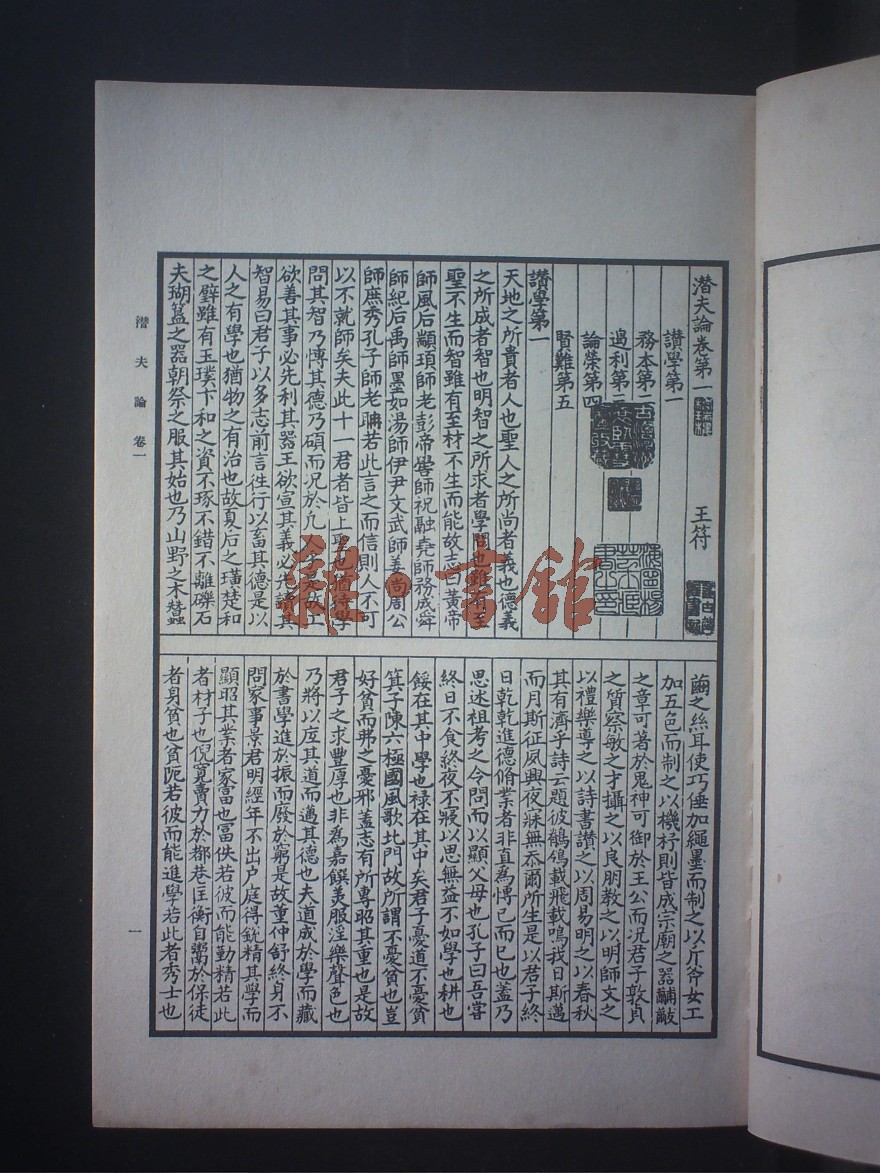 潛夫論卷第一 王符
讃學第一
務本第二
遏利第三
論榮第四
賢難第五
讃學第一
天地之所貴者人也聖人之所尚者義也德義
之所成者智也明智之所求者學問也雖有至
聖不生而智雖有至材不生而能故志曰黃帝
師風后顓頊師老彭帝嚳師祝融堯師務成舜
師紀后禹師墨如湯師伊尹文武師姜尚周公
師庶秀孔子師老聃若此言之而信則人不可
以不就師矣夫此十一君者皆上聖也猶待學
問其智乃愽其德乃碩而况於凢人乎是故工
欲善其事必先利其器王欲宣其義必先讀其
智易曰君子以多志前言徃行以畜其德是以
人之有學也猶物之有治也故夏后之璜楚和
之璧雖有玉璞卞和之資不琢不錯不離礫石
夫瑚簋之器朝祭之服其始也乃山野之木蠶
繭之絲耳使巧倕加繩墨而制之以斤斧女工
加五色而制之以機杼則皆成宗廟之器黼黻
之章可著於鬼神可御於王公而况君子敦貞
之質察敏之才攝之以良朋教之以明師文之
以禮樂導之以詩書讃之以周易明之以春秋
其有濟乎詩云題彼鶺鴒載飛載鳴我日斯邁
而月斯征夙興夜寐無忝爾所生是以君子終
日乾乾進德脩業者非直為愽已而已也蓋乃
思述祖考之令問而以顯父母也孔子曰吾嘗
終日不食終夜不寢以思無益不如學也耕也
餒在其中學也祿在其中矣君子憂道不憂貧
箕子陳六極國風歌北門故所謂不憂貧也豈
好貧而弗之憂邪蓋志有所專昭其重也是故
君子之求豐厚也非為嘉饌美服淫樂聲色也
乃將以底其道而邁其德也夫道成於學而藏
於書學進於振而廢於窮是故董仲舒終身不
問家事景君明經年不出户庭得銳精其學而
顯昭其業者家富也冨佚若彼而能勤精若此
者材子也倪寬賣力於都巷匡衡自鬻於保徒
者身貧也貧阨若彼而能進學若此者秀士也
潛夫論 卷一
一
雜·書館